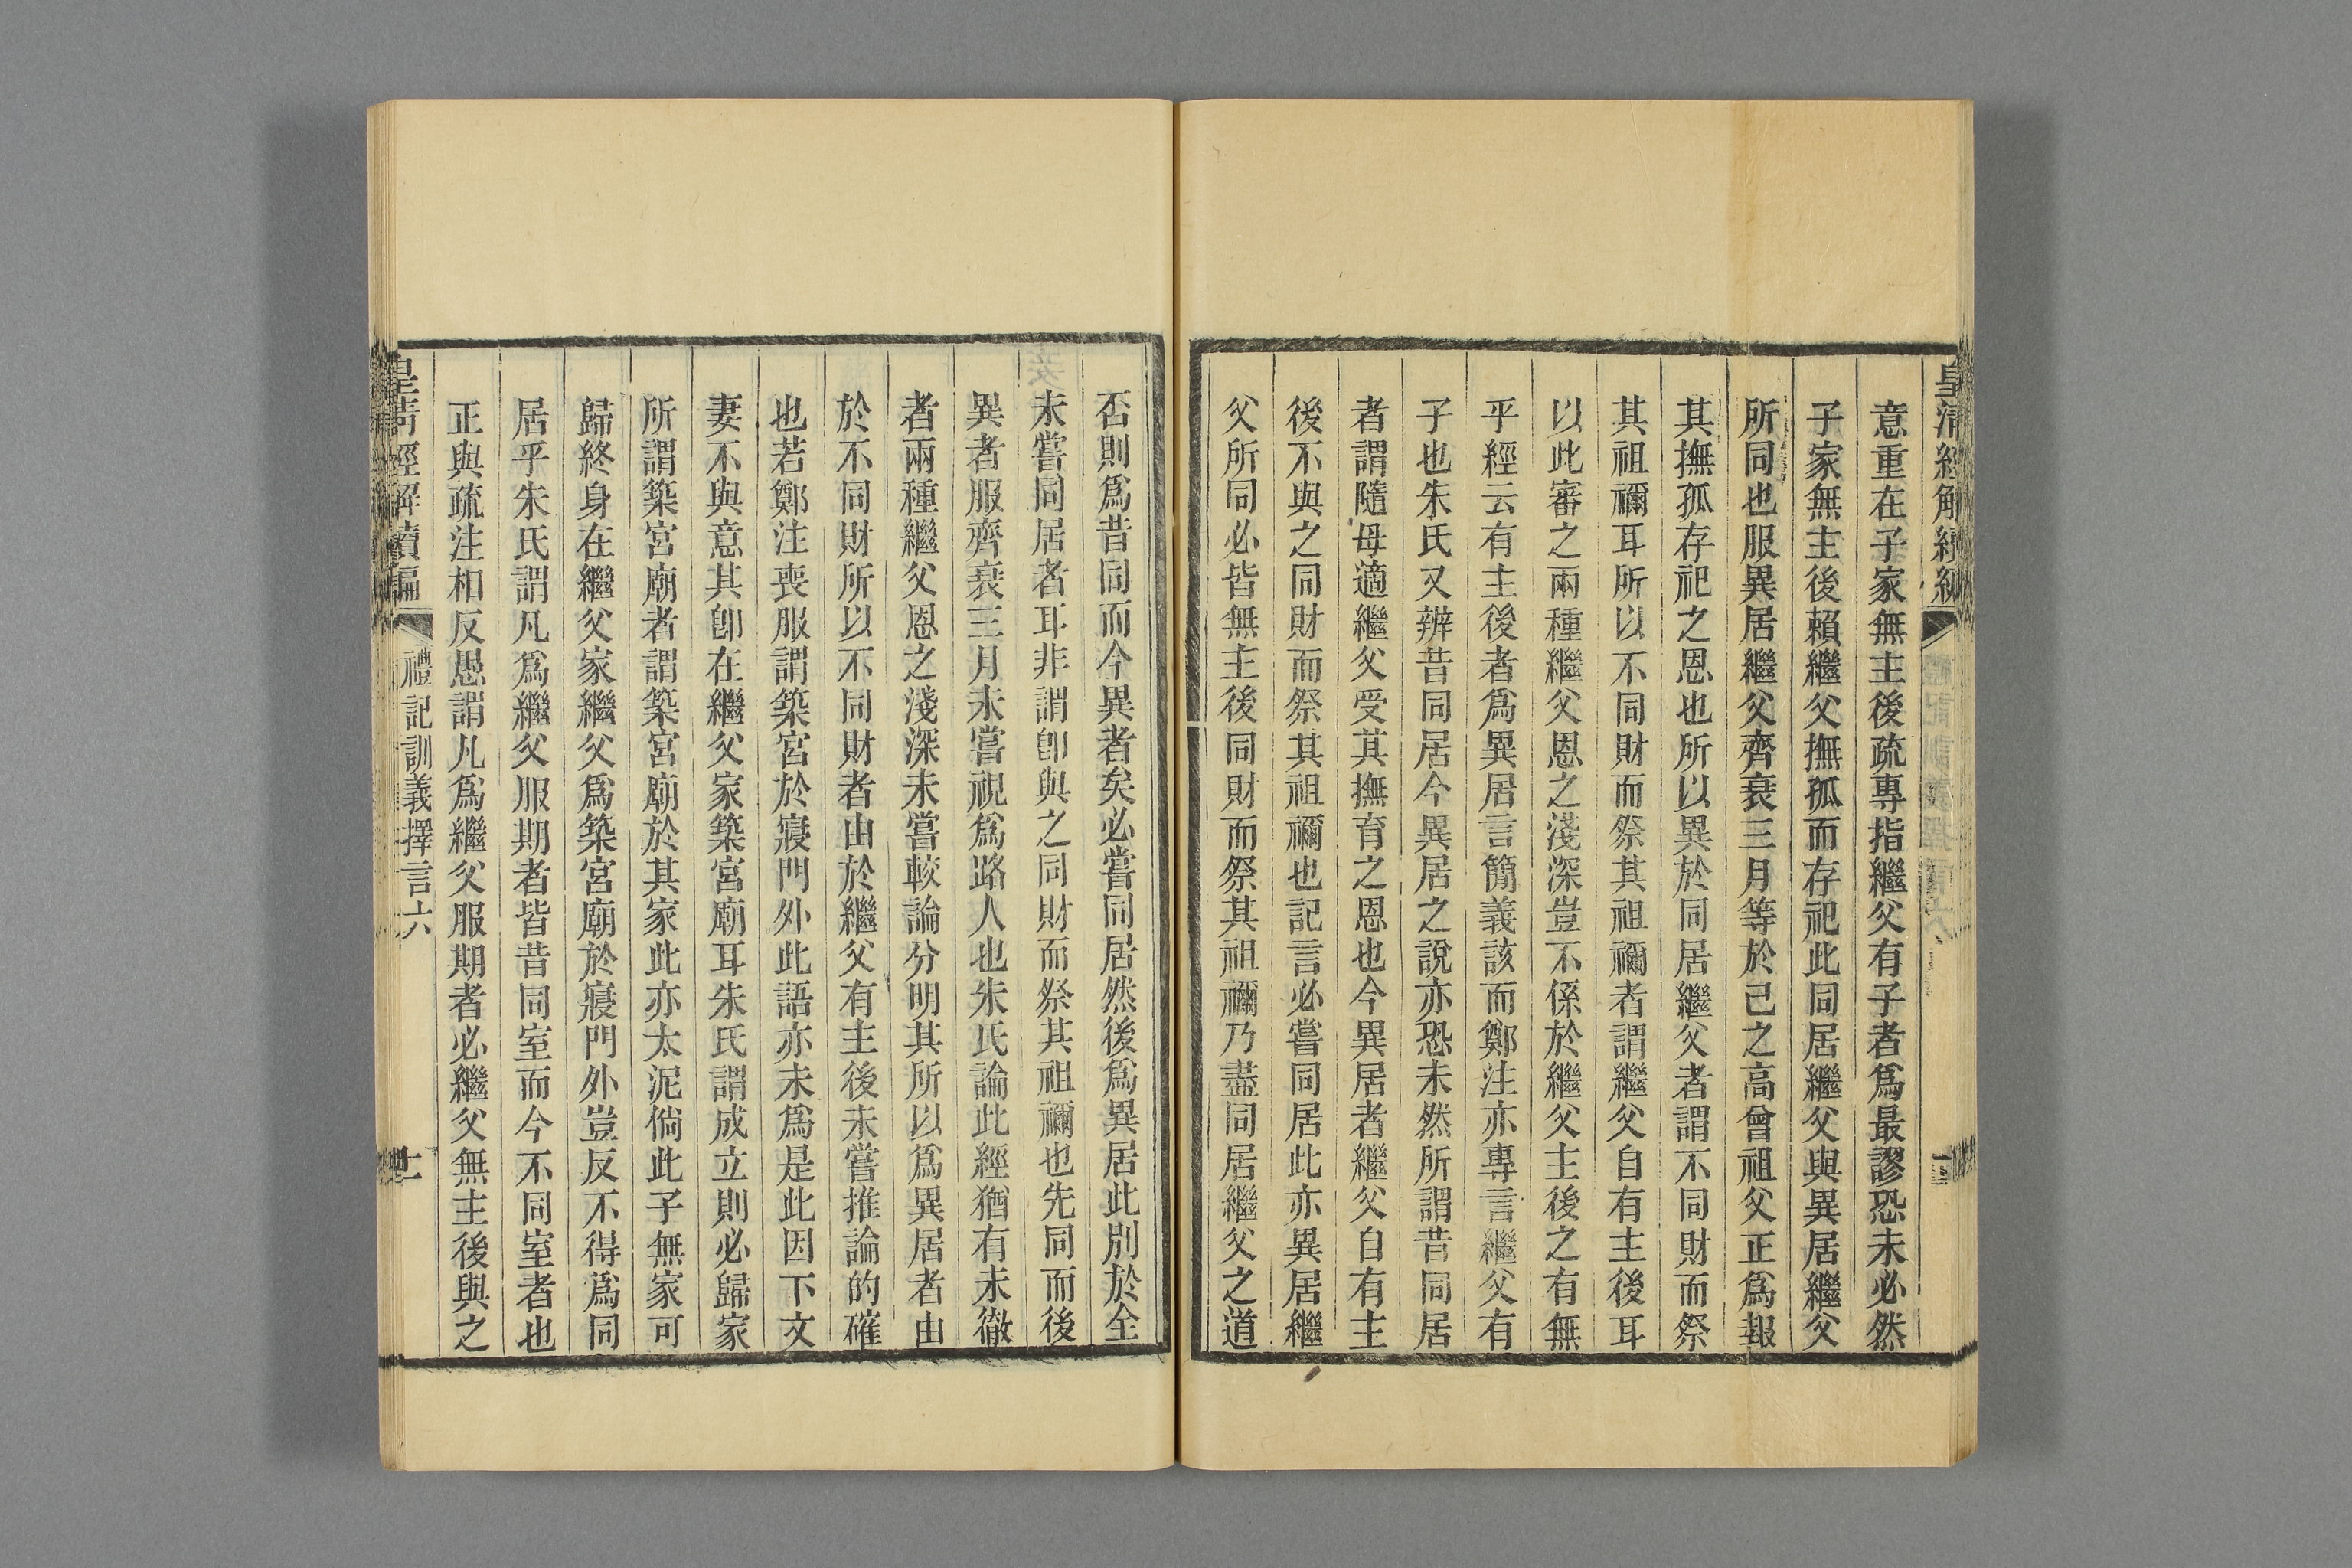 皇清經解續編
意重在子家無主後疏專指繼父有子者爲最謬恐未必然
子家無主後賴繼父撫孤而存祀此同居繼父與異居繼父
所同也服異居繼父齊衰三月等於己之高曾祖父正爲報
其撫孤存祀之恩也所以異於同居繼父者謂不同財而祭
其祖禰耳所以不同財而祭其祖禰者謂繼父自有主後耳
以此審之兩種繼父恩之淺深豈不係於繼父主後之有無
乎經云有主後者爲異居言簡義該而鄭注亦專言繼父有
子也朱氏又辨昔同居今異居之說亦恐未然所謂昔同居
者謂隨母適繼父受其撫育之恩也今異居者繼父自有主
後不與之同財而祭其祖禰也記言必嘗同居此亦異居繼
父所同必皆無主後同財而祭其祖禰乃盡同居繼父之道
否則爲昔同而今異者矣必嘗同居然後爲異居此別於全
未嘗同居者耳非謂卽與之同財而祭其祖禰也先同而後
異者服齊衰三月未嘗視爲路人也朱氏論此經猶有未徹
者兩種繼父恩之淺深未嘗較論分明其所以爲異居者由
於不同財所以不同財者由於繼父有主後未嘗推論的確
也若鄭注喪服謂築宮於寢門外此語亦未爲是此因下文
妻不與意其卽在繼父家築宮廟耳朱氏謂成立則必歸家
所謂築宮廟者謂築宮廟於其家此亦太泥倘此子無家可
歸終身在繼父家繼父爲築宮廟於寢門外豈反不得爲同
居乎朱氏謂凡爲繼父服期者皆昔同室而今不同室者也
正與疏注相反愚謂凡爲繼父服期者必繼父無主後與之
皇清經解續編
禮記訓義擇言六